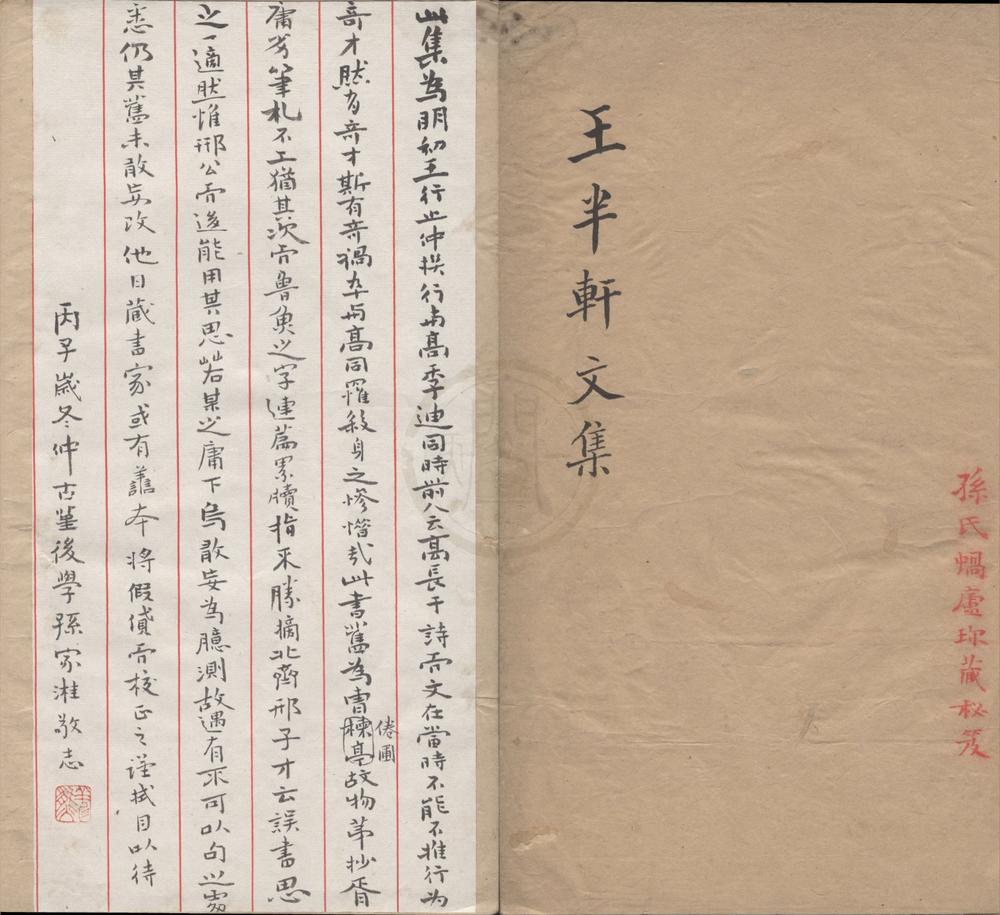 孫氏蝸廬珎藏秘笈
王半軒文集
此集為明初王行止仲撰行与高季迪同時前人云高長于詩而文在當時不能不推行为
奇才然有奇才斯有奇禍卒与高同罹殺身之慘惜哉此書舊為曹楝亭故物苐抄胥
倦圃
庸劣筆札不工猶其次而魯魚之字連篇累牘指不勝摘北齊邢子才云誤書思
之一適然惟邢公而後能用其思若某之庸下烏敢妄為臆測故遇有不可以句之處
悉仍其舊未敢妄改他日藏書家或有善本將假貸而校正之謹拭目以待
丙子歲冬仲古堇後學孫家溎敬志